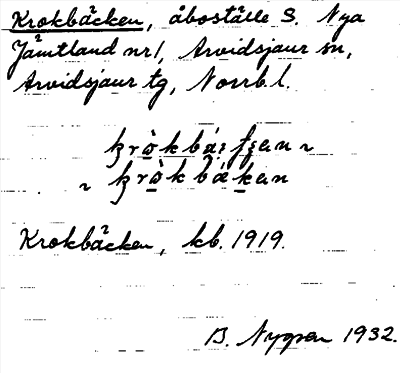 Krokbäcken, åboställe S. Nya
Jämtland nr 1, Arvidsjaur sn,
Arvidsjaur tg, Norrb. l.
Krokbäcken, kb. 1919.
B. Nygren 1932.